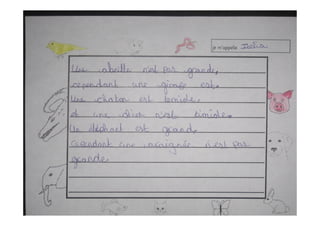 je m'appelle
Une abeille n'est pas grande,
cependant une girafe est,
Une chaton est timide,
et une chien n'est timide,
Un éléphant est grand,
Cependant une araignée n'est pas
grande.